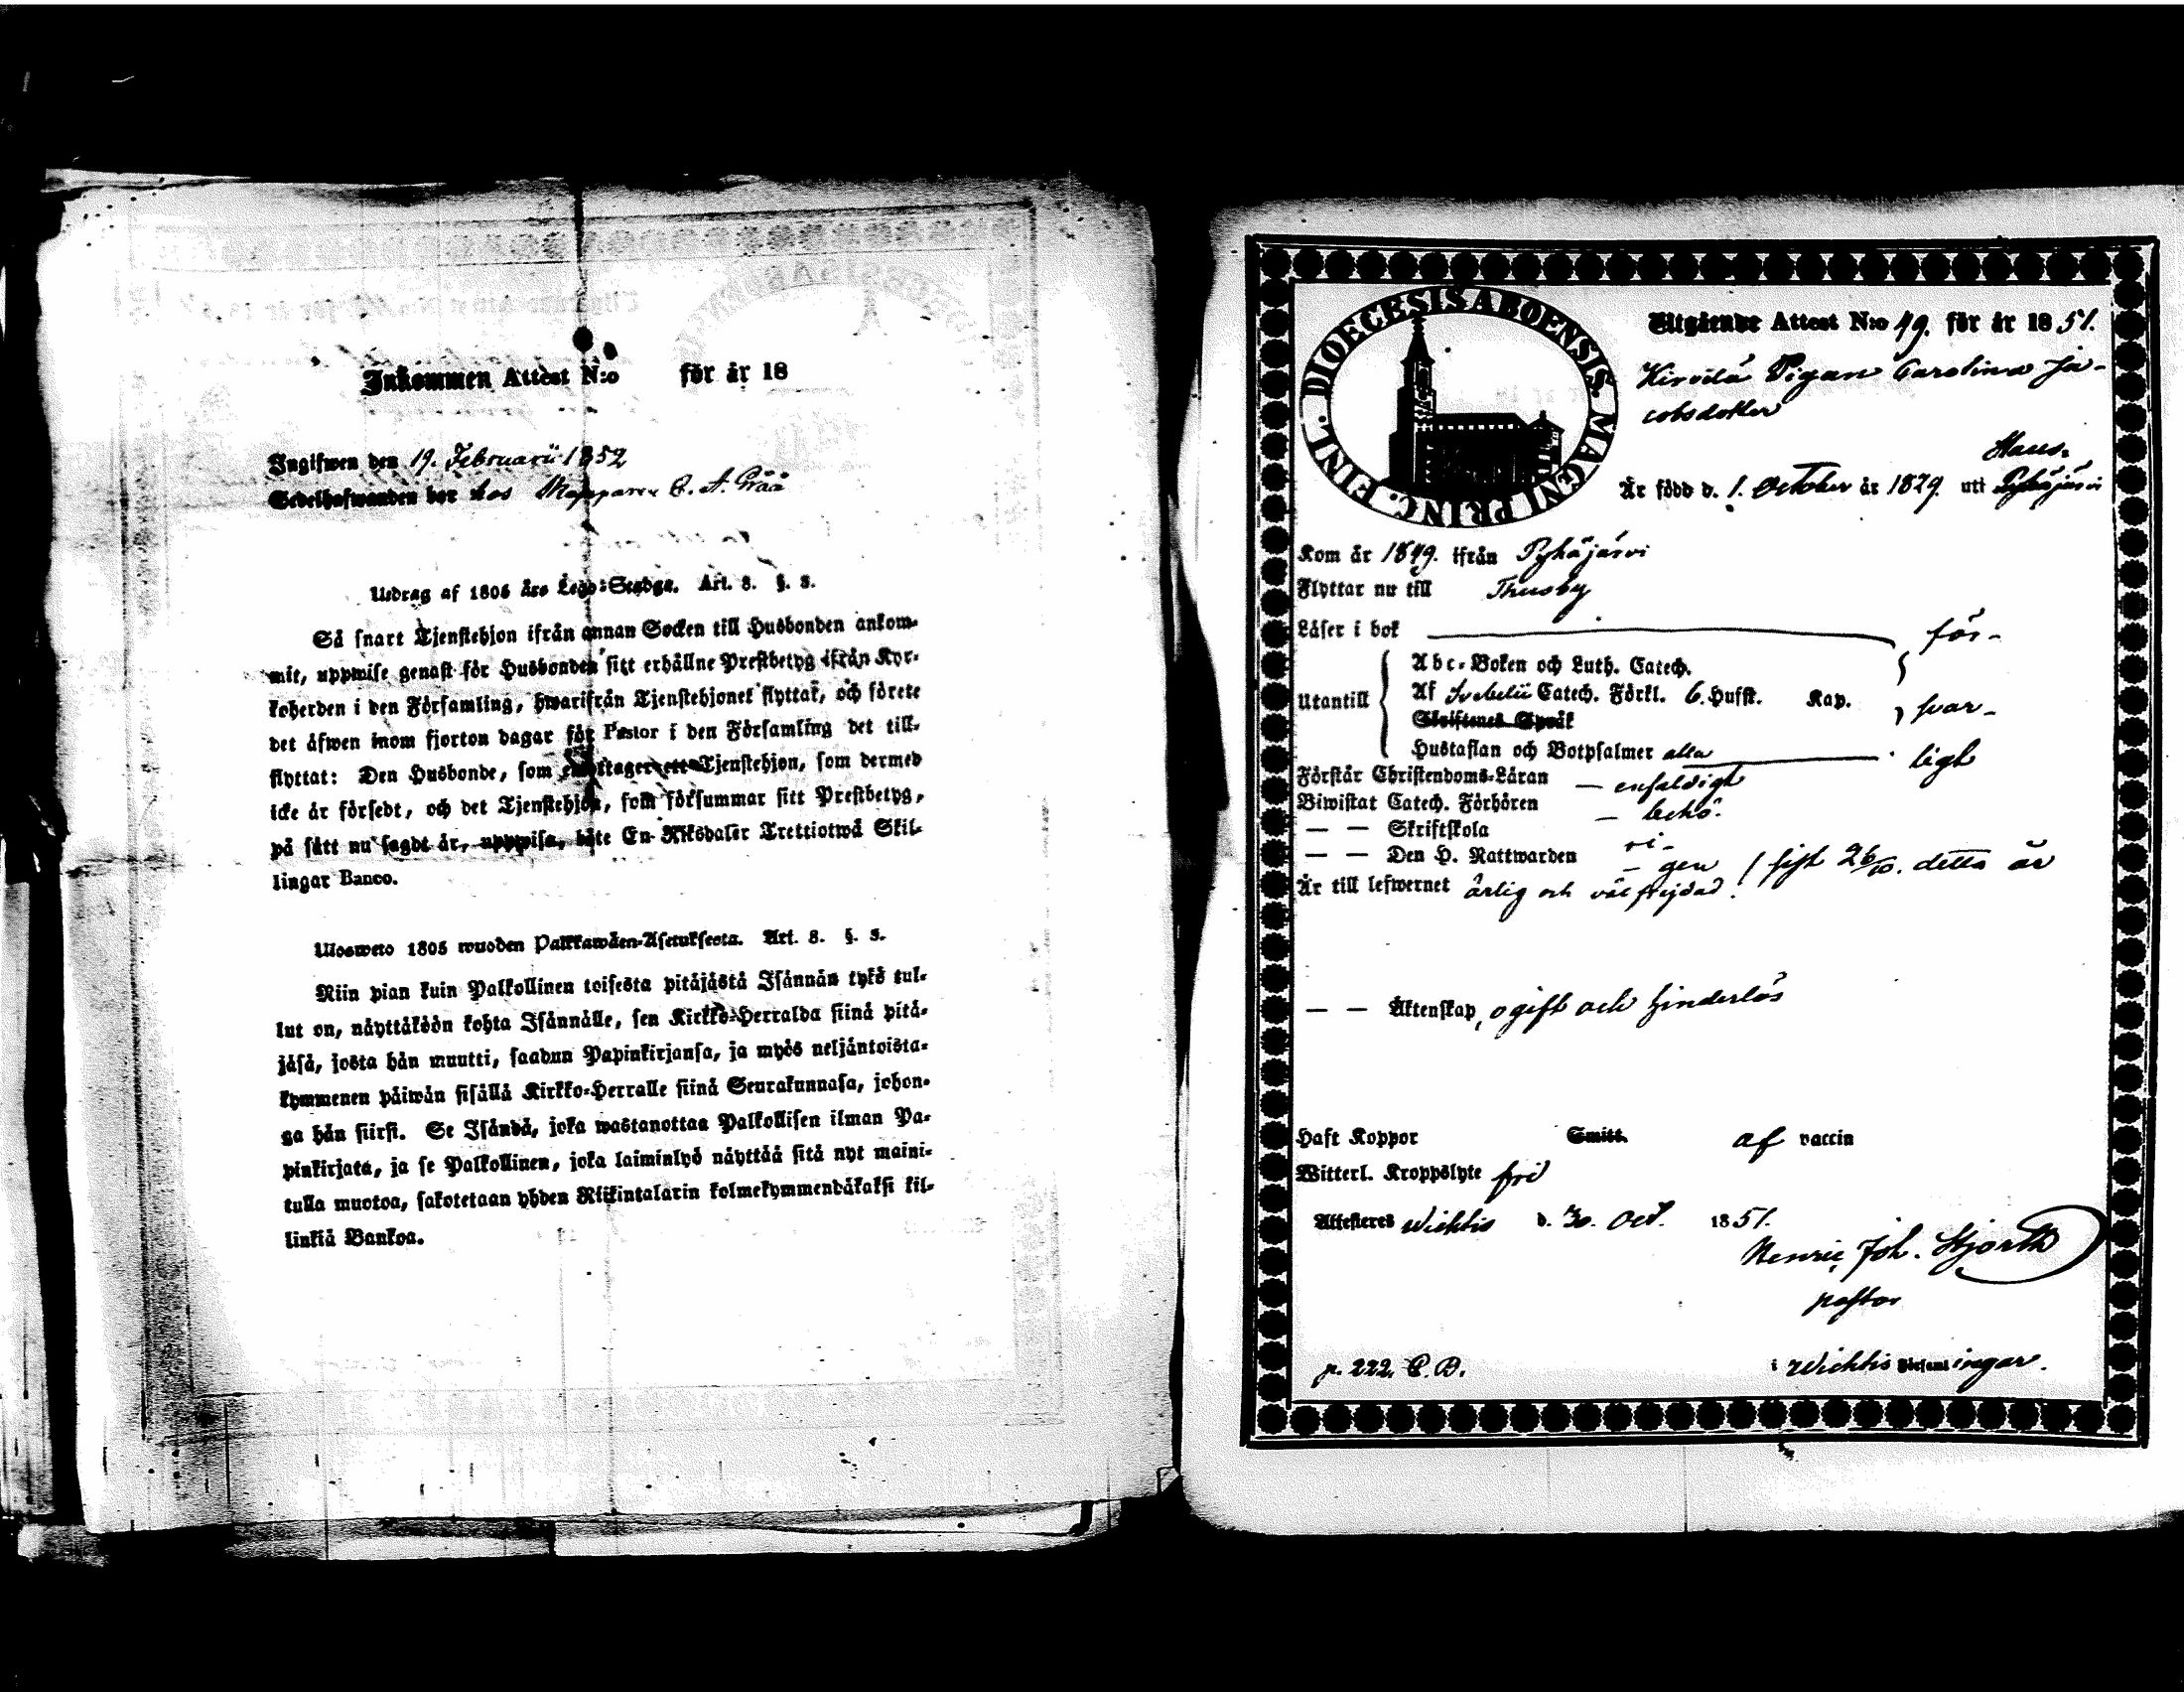 Inkommen Attest N:o för år 18
Ingifwen den 19. Februarii 1852
Sedelhafwanden bor hos Skepparen C. A. Grää
Utdrag af 1805 års Lego-Stadga. Art. 8. §. 3.
Så snart Tjenstehjon ifrån annan Socken till Husbonden ankom-
mit, uppwise genast för Husbonden sitt erhållne Prestbetyg ifrån Kyr-
koherden i den Församling, hwarifrån Tjenstehjonet flyttat, och förete
det äfwen inom fjorton dagar för Pastor i den Församling det till-
flyttat: Den Husbonde, som emottager ett Tjenstehjon, som dermed
icke är försedt, och det Tjenstehjon, som försummar sitt Prestbetyg,
på sätt nu sagdt är, uppwisa, böte En Riksdaler Trettiotwå Skil-
lingar Banco.
Ulosweto 1805 wuoden Palkkawäen-Asetuksesta. Art. 8. §. 3.
Niin pian kuin Palkollinen toisesta pitäjästä Isännän tykö tul-
lut on, näyttäköön kohta Isännälle, sen Kirkko-Herralda siinä pitä-
jäsä, josta hän muutti, saadun Papinkirjansa, ja myös neljäntoista-
kymmenen päiwän sisällä Kirkko-Herralle siinä Seurakunnasa, johon-
ga hän siirsi. Se Isändä, joka wastanottaa Palkollisen ilman Pa-
pinkirjata, ja se Palkollinen, joka laiminlyö näyttää sitä nyt maini-
tulla muotoa, sakotetaan yhden Riikintalarin kolmekymmendäkaksi kil-
linkiä Bankoa.
DIOECESIS ABOENSIS. MAGNI PRINC. FINL.
Utgående Attest N:o 49. för år 1851.
Pigan Carolina Ja-
cobsdotter
Haus-
Är född d. 1. October år 1829. uti Pyhäjärvi
Kom år 1849. ifrån Pyhäjärvi
Flyttar nu till Thusby
Läser i bok för-
Utantill
Abc-Boken och Luth. Catech.
Af Svebelii Catech. Förkl. 6. Hufst. Kap. svar-
Skriftenes Språk
Hustaflan och Botpsalmer alla ligt
Förstår Christendoms-Läran — enfaldigt
Biwistat Catech. Förhören — behö-
— — Skriftskola ri-
— — Den H. Nattwarden — gen / sist 26/10. detta år
Är till lefwernet ärlig och väl frejdad.
— — Äktenskap, ogift och hinderlös
Haft Koppor Smitt. af vaccin
Witterl. Kroppslyte fri
Attesteres Wichtis d. 30. Oct. 1851.
Henric Joh. Hjorth
pastor
p. 222. C. B. i Wichtis Församlingar.